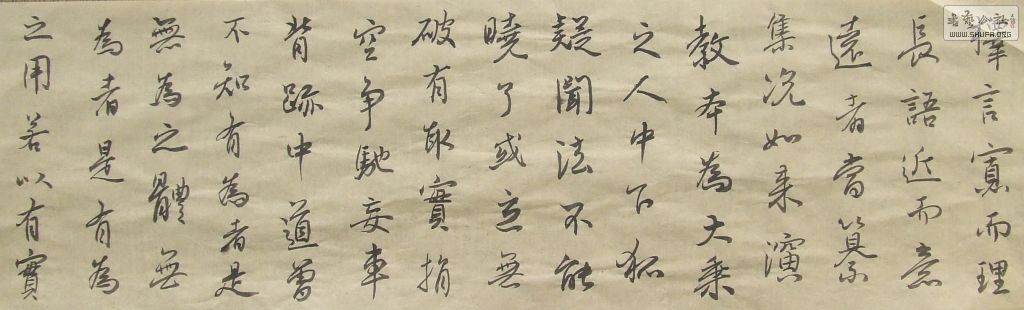 擇言寡而理
長語近而意
遠者當纂
集況如來演
教本為大乘
之人中下狐
疑聞法不能
曉了或立無
破有取實捐
空爭馳妄車
背跡中道曾
不知有為者是
無為之體無
為者是有為
之用若以有實
WWW.SHUFA.ORG